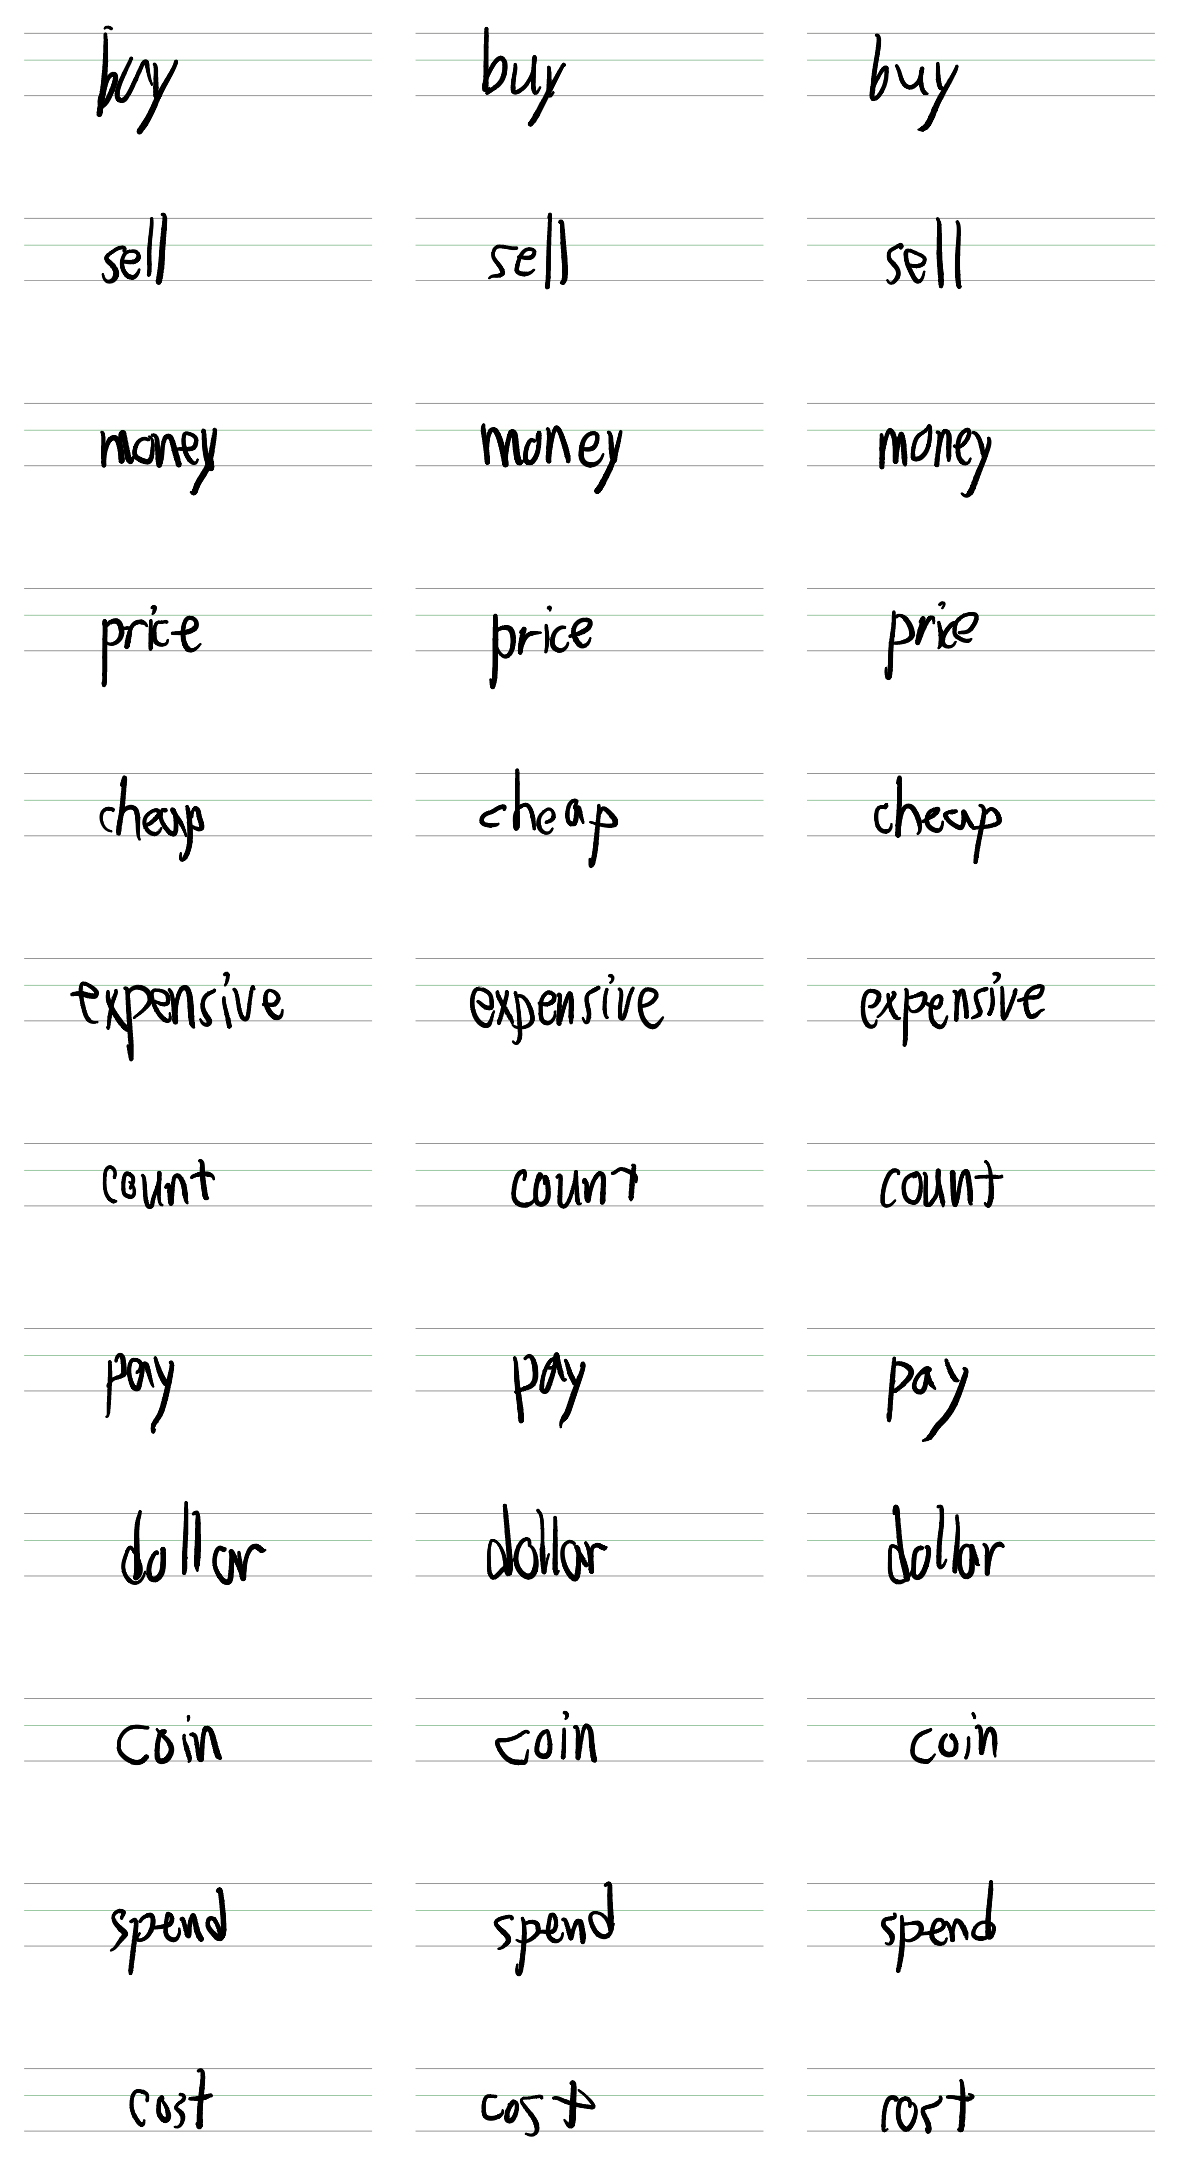 buy buy buy
sell sell sell
money money money
price price price
cheap cheap cheap
expensive expensive expensive
count count count
pay pay pay
dollar dollar dollar
coin coin coin
spend spend spend
cost cost cost